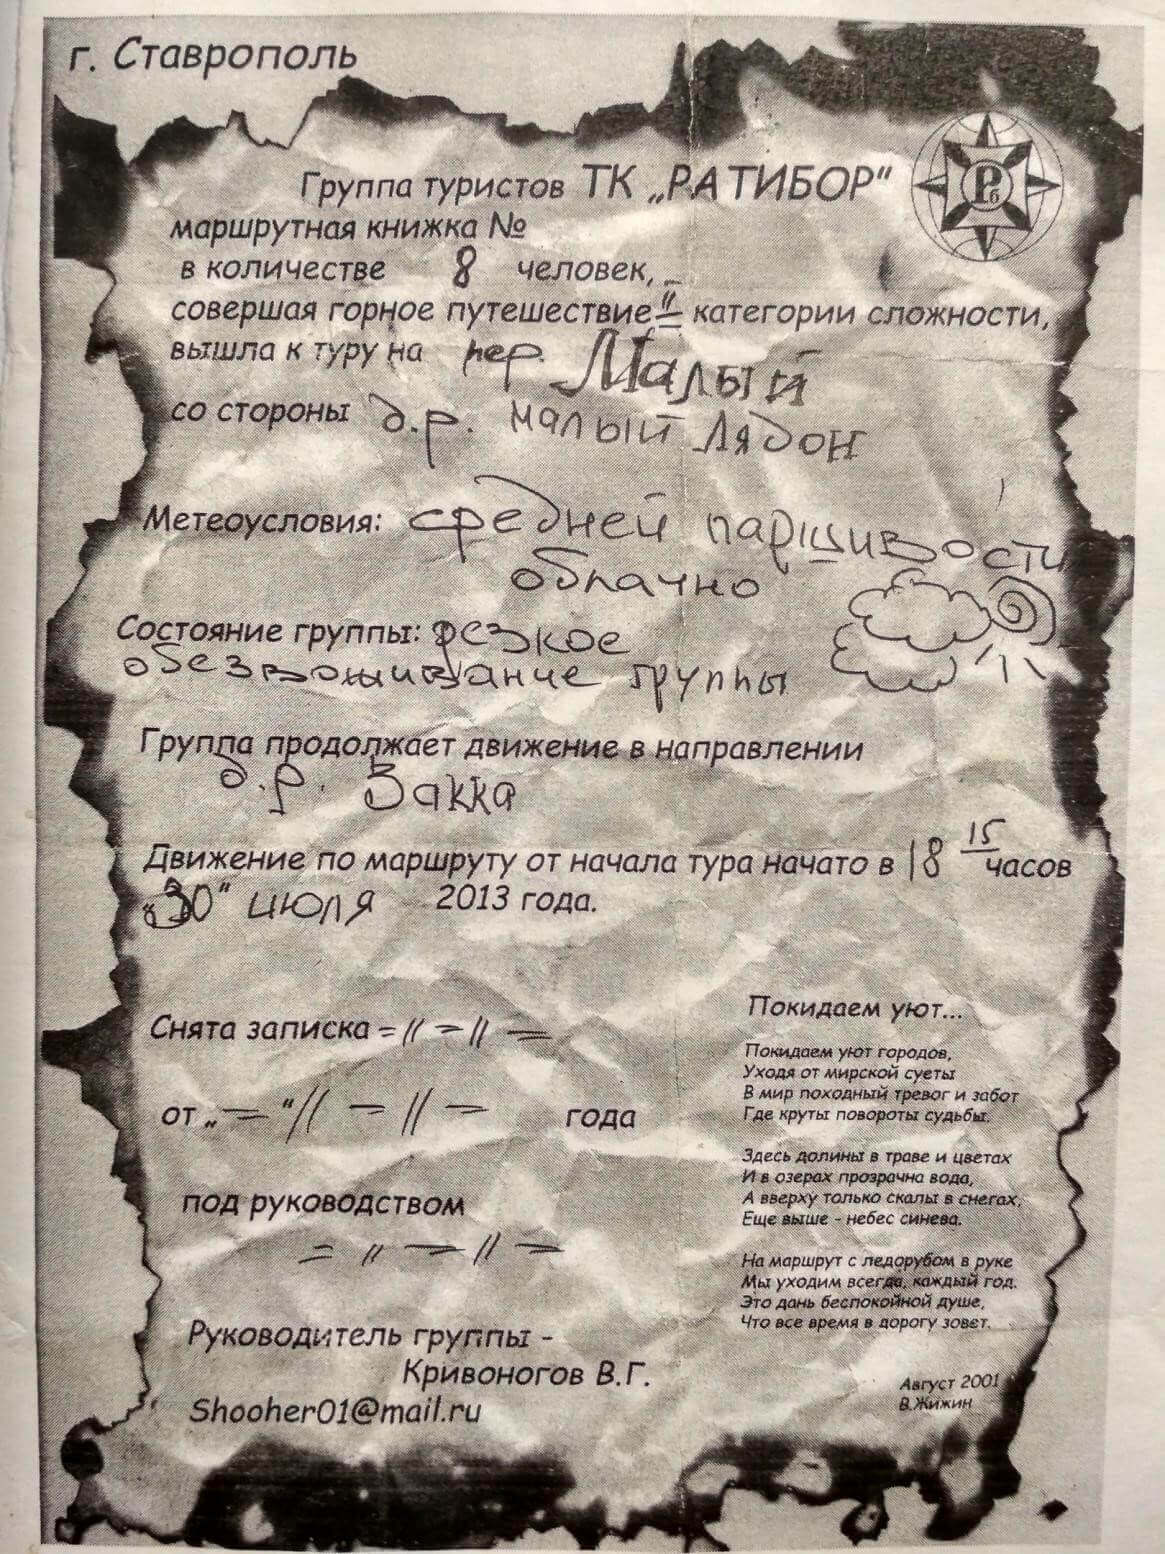 г. Ставрополь
Рб
Группа туристов ТК „РАТИБОР"
маршрутная книжка №
в количестве 8 человек,
совершая горное путешествие II категории сложности,
вышла к туру на пер. Малый
со стороны д.р. малый Лядон
Метеоусловия: средней паршивости
облачно
Состояние группы: резкое
обезвоживание группы
Группа продолжает движение в направлении
д.р. Закка
Движение по маршруту от начала тура начато в 18 15 часов
„30" июля 2013 года.
Снята записка =//=//=
от „="//=//= года
под руководством
=//=//=
Руководитель группы -
Кривоногов В.Г.
Shooher01@mail.ru
Покидаем уют...
Покидаем уют городов,
Уходя от мирской суеты
В мир походный тревог и забот
Где круты повороты судьбы.
Здесь долины в траве и цветах
И в озерах прозрачна вода,
А вверху только скалы в снегах,
Еще выше - небес синева.
На маршрут с ледорубом в руке
Мы уходим всегда, каждый год.
Это дань беспокойной душе,
Что все время в дорогу зовет.
Август 2001
В.Жижин